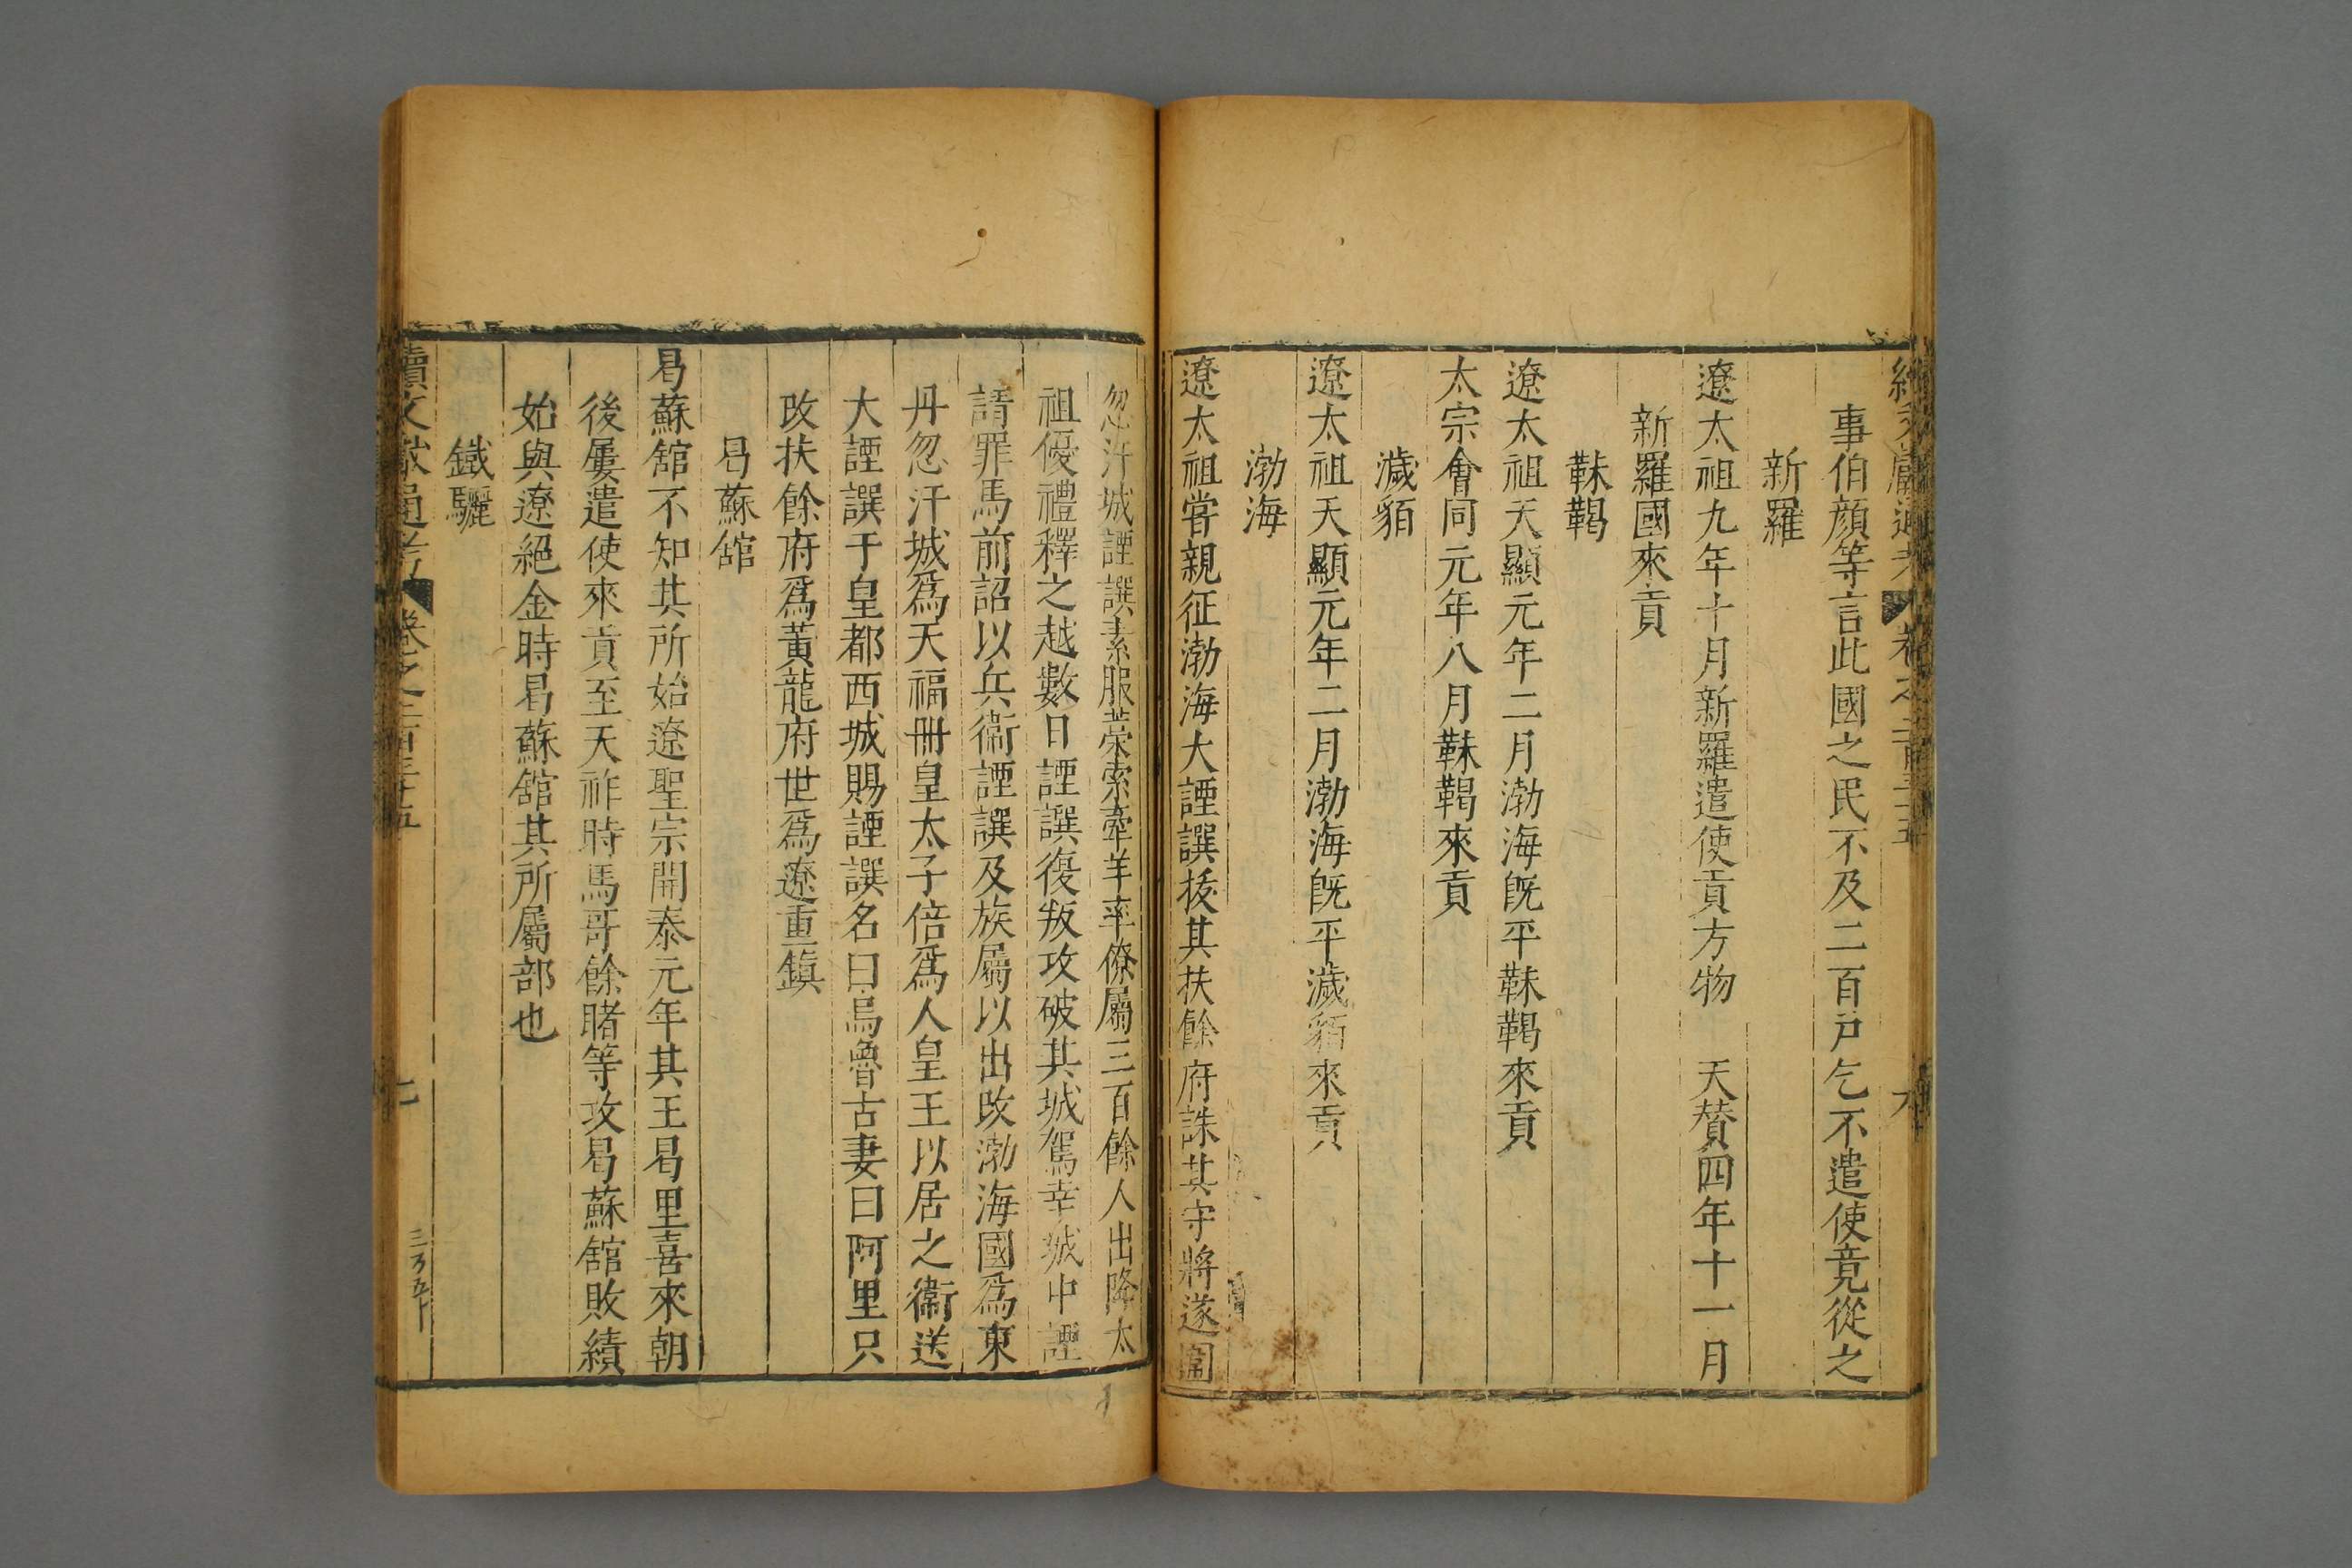 續文獻通考 卷之二百三十五 六
事伯顏等言此國之民不及二百戸乞不遣使竟從之
新羅
遼太祖九年十月新羅遣使貢方物 天賛四年十一月
新羅國來貢
靺鞨
遼太祖天顯元年二月渤海旣平靺鞨來貢
太宗會同元年八月靺鞨來貢
濊貊
遼太祖天顯元年二月渤海旣平濊貊來貢
渤海
遼太祖嘗親征渤海大諲譔拔其扶餘府誅其守將遂圍
忽汗城諲譔素服藁索牽羊率僚屬三百餘人出降太
祖優禮釋之越數日諲譔復叛攻破其城駕幸城中諲
請罪馬前詔以兵衞諲譔及族屬以出改渤海國爲東
丹忽汗城爲天福冊皇太子倍爲人皇王以居之衞送
大諲譔于皇都西城賜諲譔名曰烏魯古妻曰阿里只
改扶餘府爲黃龍府世爲遼重鎮
曷蘇舘
曷蘇舘不知其所始遼聖宗開泰元年其王曷里喜來朝
後屢遣使來貢至天祚時馬哥餘睹等攻曷蘇舘敗績
始與遼絕金時曷蘇舘其所屬部也
鐵驪
續文獻通考 卷之二百三十五 七